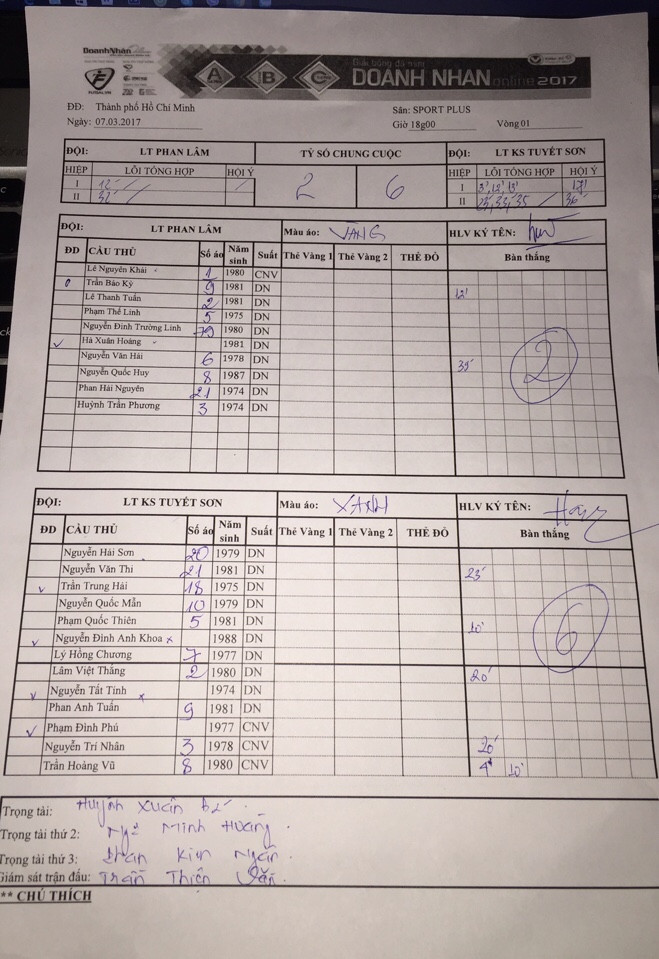 DoanhNhân
FUSAL.VN
A B C
Giải bóng đá mini
DOANH NHÂN online 2017
ĐĐ: Thành phố Hồ Chí Minh Sân: SPORT PLUS
Ngày: 07.03.2017 Giờ 18g00 Vòng 01
ĐỘI: LT PHAN LÂM TỶ SỐ CHUNG CUỘC ĐỘI: LT KS TUYẾT SƠN
HIỆP LỖI TỔNG HỢP HỘI Ý 2 6 HIỆP LỖI TỔNG HỢP HỘI Ý
I 12' I 3', 12', 13' 17'
II 32' II 23', 33', 35' 36'
ĐỘI: LT PHAN LÂM Màu áo: VÀNG HLV KÝ TÊN:
ĐD CẦU THỦ Số áo Năm sinh Suất Thẻ Vàng 1 Thẻ Vàng 2 THẺ ĐỎ Bàn thắng
Lê Nguyên Khải 1 1980 CNV
Trần Bảo Kỳ 9 1981 DN 12'
Lê Thanh Tuấn 2 1981 DN
Phạm Thế Linh 5 1975 DN
Nguyễn Đình Trường Linh 79 1980 DN
Hà Xuân Hoàng 1981 DN
Nguyễn Văn Hải 6 1978 DN
Nguyễn Quốc Huy 8 1987 DN 35'
Phan Hải Nguyên 21 1974 DN
Huỳnh Trần Phương 3 1974 DN
2
ĐỘI: LT KS TUYẾT SƠN Màu áo: XANH HLV KÝ TÊN:
ĐD CẦU THỦ Số áo Năm sinh Suất Thẻ Vàng 1 Thẻ Vàng 2 THẺ ĐỎ Bàn thắng
Nguyễn Hải Sơn 20 1979 DN
Nguyễn Văn Thi 21 1981 DN 23'
Trần Trung Hải 18 1975 DN
Nguyễn Quốc Mẫn 10 1979 DN
Phạm Quốc Thiên 5 1981 DN 10'
Nguyễn Đình Anh Khoa x 1988 DN
Lý Hồng Chương 7 1977 DN
Lâm Việt Thăng 2 1980 DN 20'
Nguyễn Tất Tính x 1974 DN
Phan Anh Tuấn 9 1981 DN
Phạm Đình Phú 1977 CNV
Nguyễn Trí Nhân 3 1978 CNV 20'
Trần Hoàng Vũ 8 1980 CNV 4' 10'
6
Trọng tài: Huỳnh Xuân
Trọng tài thứ 2: Minh Hoàng
Trọng tài thứ 3: Phan Kim Ngân
Giám sát trận đấu: Trần Thiện Văn
** CHÚ THÍCH